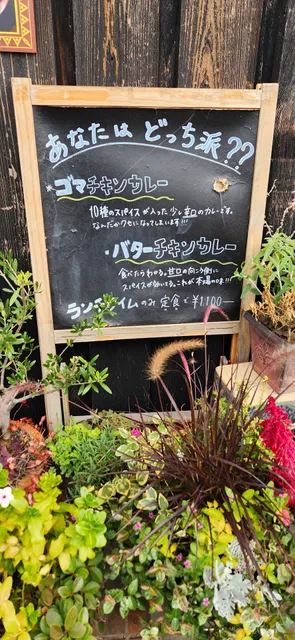 あなたは どっち派??
ゴマチキンカレー
10種のスパイスが入った少し辛口のカレーです。
なんだかクセになってしまいます!!!
・バターチキンカレー
食べたらわかる。甘口の向こう側に
スパイスが効いてる。これが本場の味!!!
ランチタイムのみ 定食で ¥1,100—